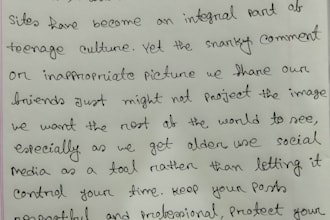 sites have become an integral part of
teenage culture. Yet the snarky comment
or inappropriate picture we share our
friends just might not project the image
we want the rest of the world to see,
especially as we get older use social
media as a tool rather than letting it
control your time. Keep your posts
respectful and professional, protect your